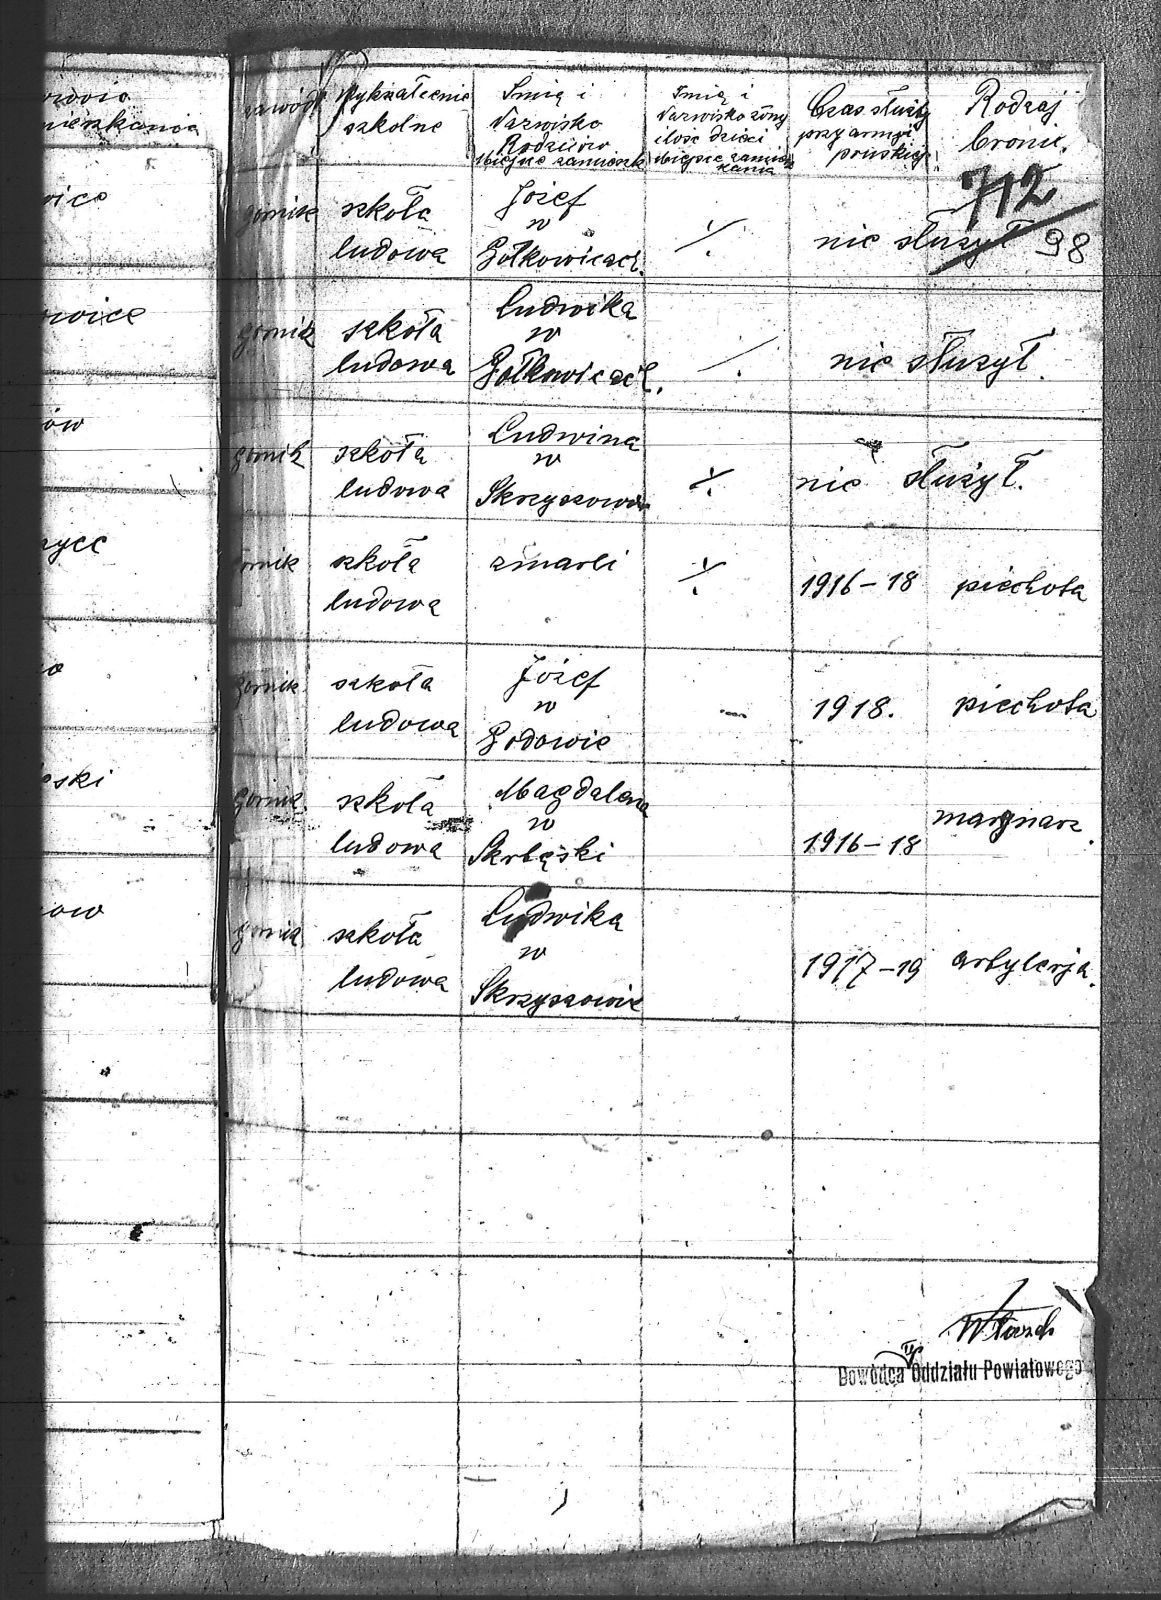 zawód
Wykształcenie
szkolne
Imię i
Nazwisko
Rodziców
Miejsce zamieszk
Imię i
Nazwisko żony
ilość dzieci
Miejsce zamiesz
kania
Czas służby
przy armji
pruskiej
Rodzaj
broni.
712
98
górnik
szkoła
ludowa
Józef
w
Gołkowicach.
nie służył
górnik
szkoła
ludowa
Ludwika
w
Gołkowicach.
nie służył.
górnik
szkoła
ludowa
Ludwina
w
Skrzyszowie
nie służył.
górnik
szkoła
ludowa
zmarli
1916-18
piechota
górnik
szkoła
ludowa
Józef
w
Godowie
1918.
piechota
górnik
szkoła
ludowa
Magdalena
w
Skrbęski
1916-18
marynarz.
górnik
szkoła
ludowa
Ludwika
w
Skrzyszowie
1917-19
artylerja.
Dowódca Oddziału Powiatowego